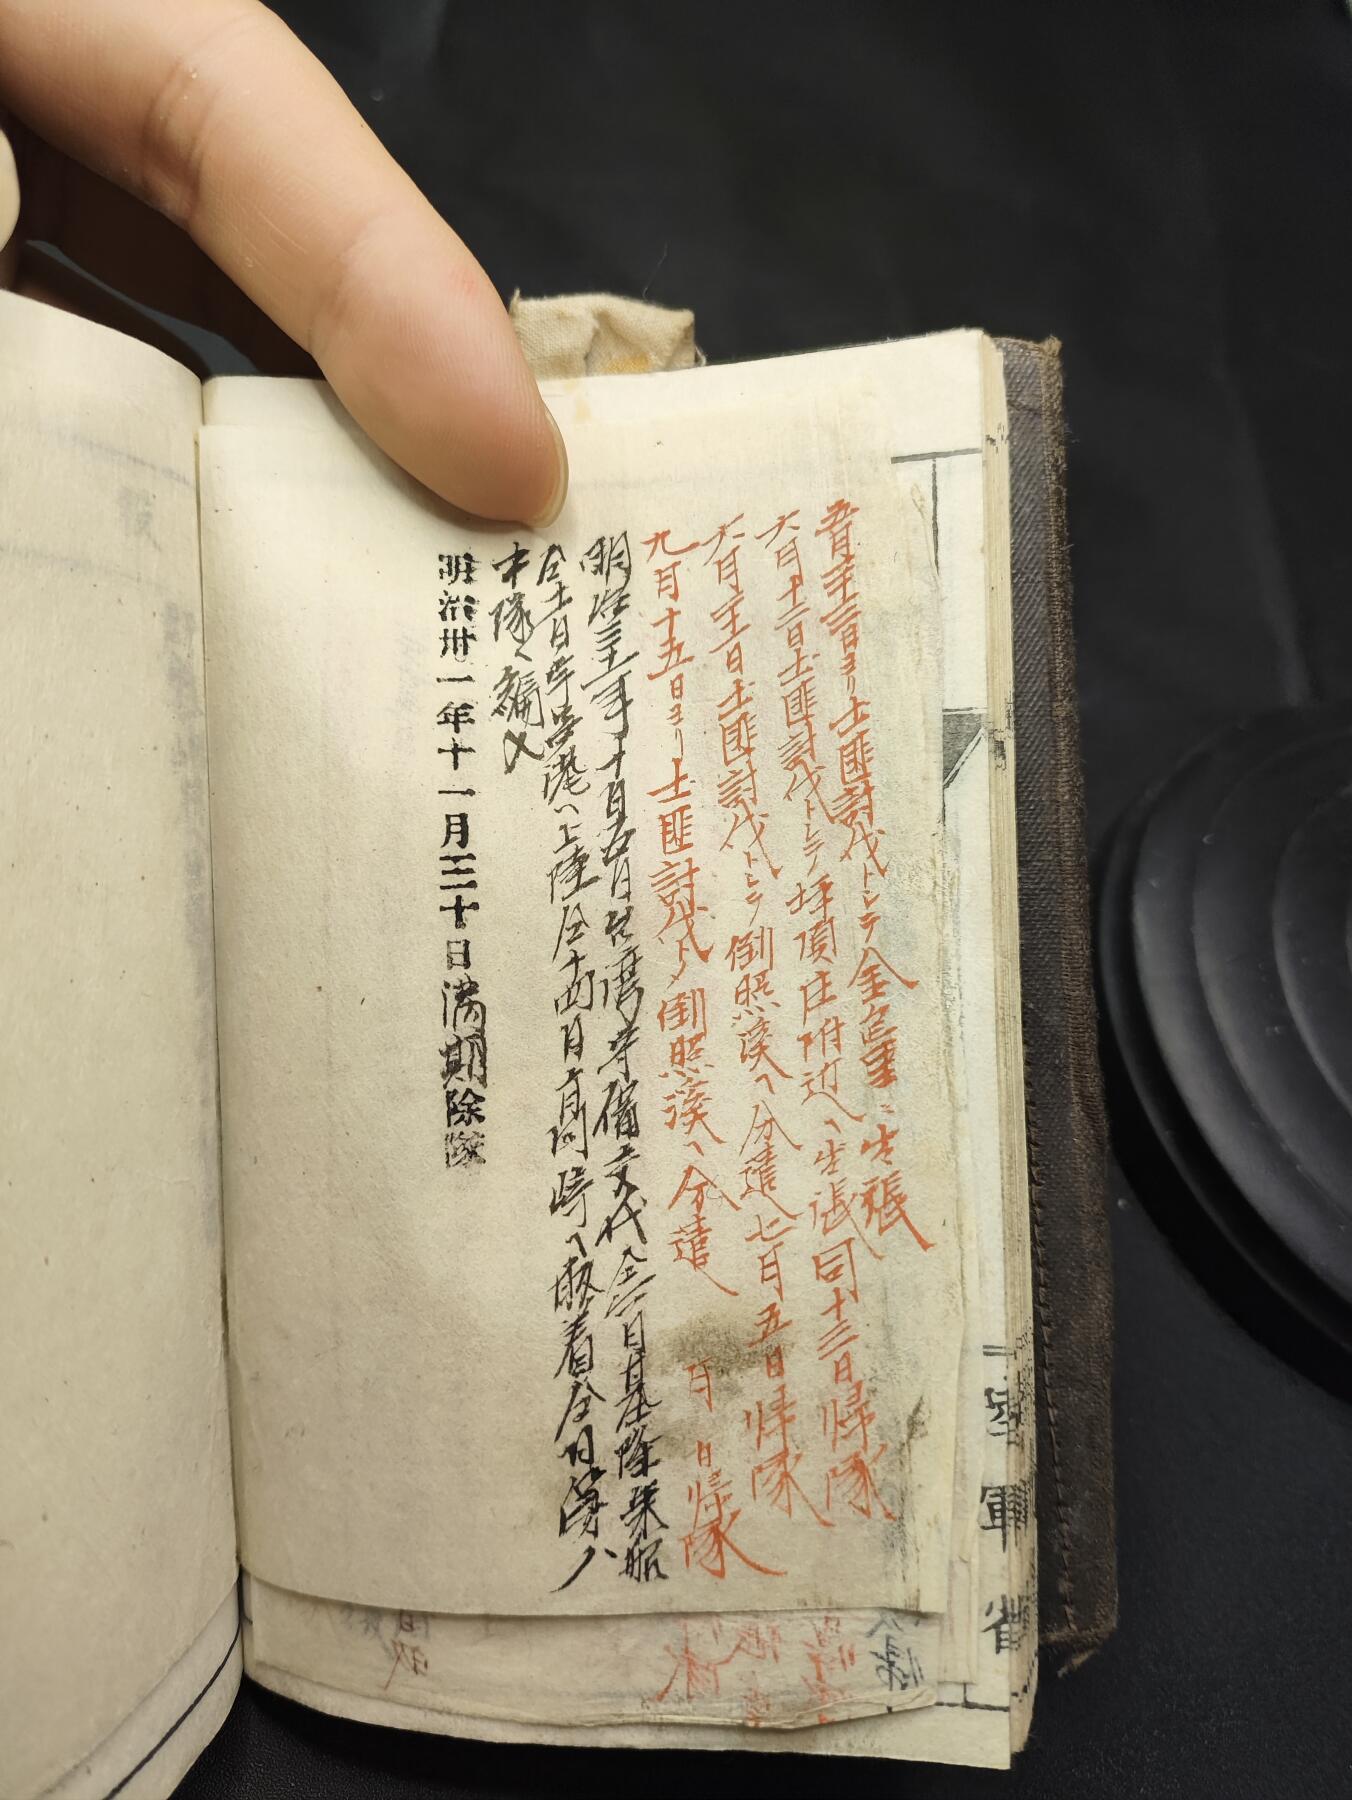 五月廿三日ヨリ土匪討伐トシテ金包里ニ出張
六月十二日土匪討伐トシテ坪頂庄附近ヘ出張同十三日帰隊
六月廿一日土匪討伐トシテ倒照湊ヘ分遣七月五日帰隊
九月十五日ヨリ土匪討伐トノ倒照湊ヘ分遣 月 日帰隊
明治三十一年十月五日台湾守備交代仝六日基隆乗船
仝十一日宇品港ヘ上陸仝十四日高崎ヘ帰着仝日第八
中隊ヘ編入
明治卅一年十一月三十日満期除隊
陸軍省